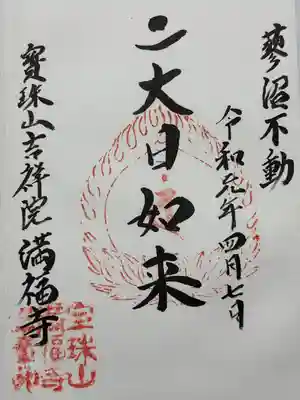 蓼沼不動
令和元年四月七日
二大日如来
寶珠山吉祥院満福寺
宝珠山
満福寺